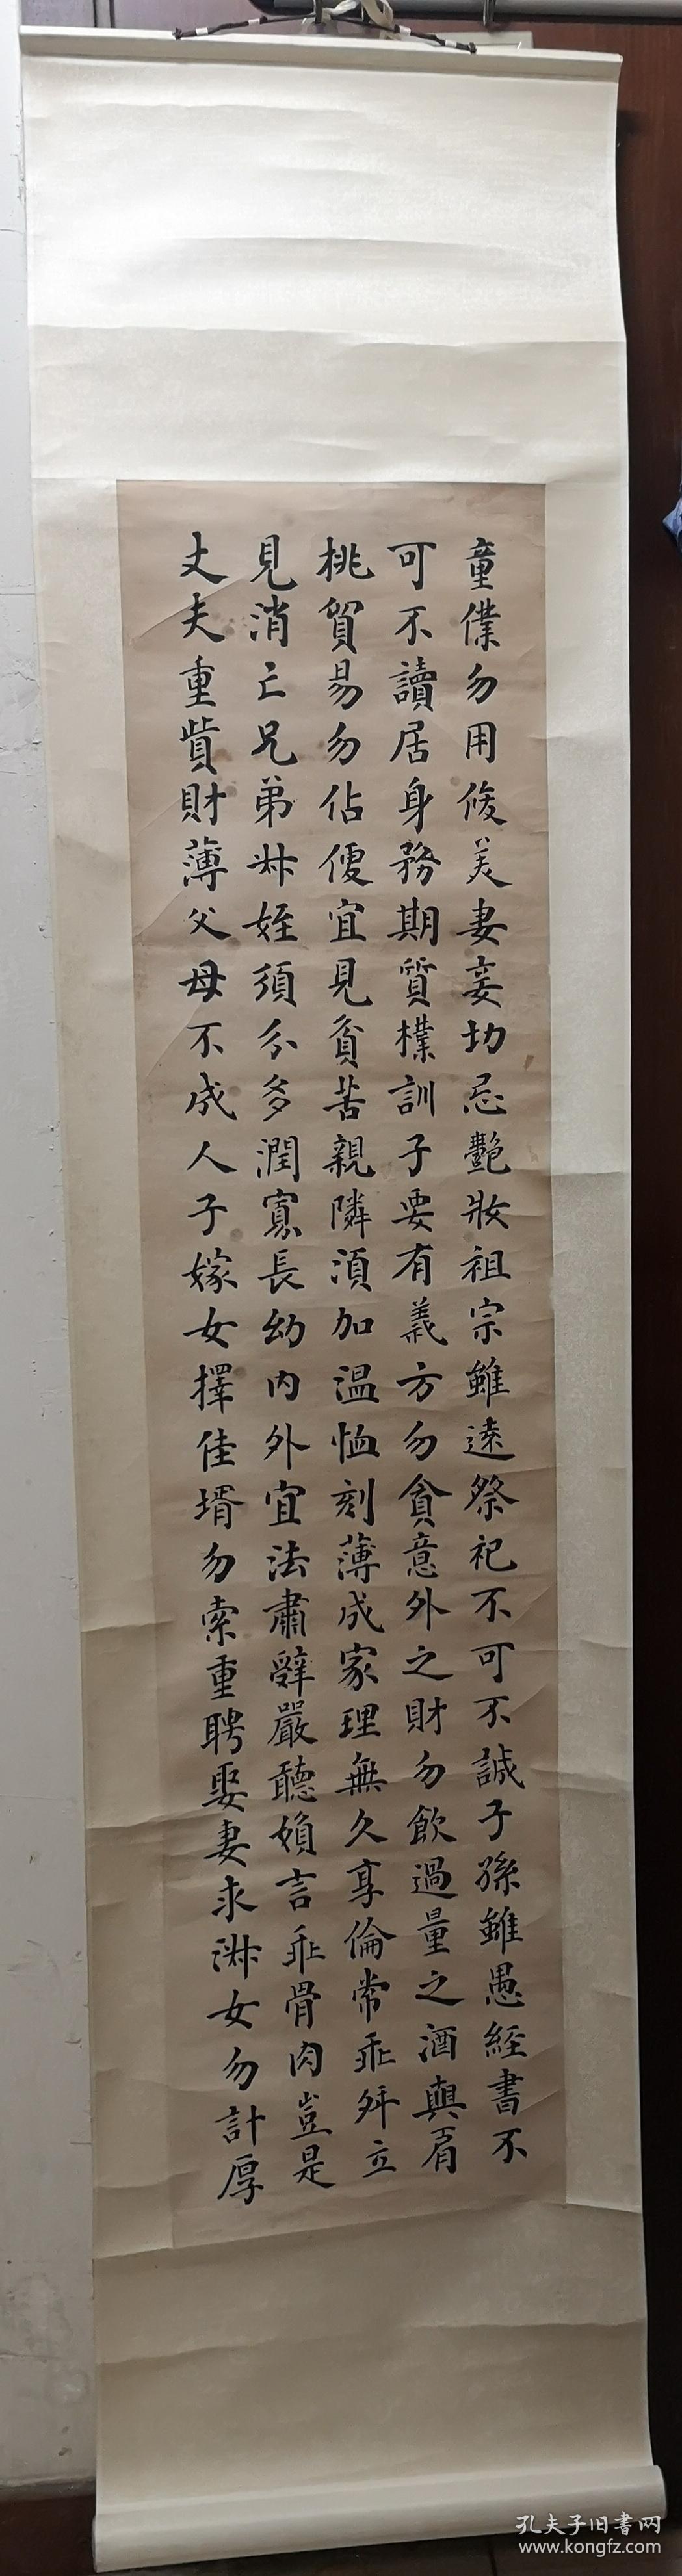 童僕勿用俊美妻妾切忌艷妝祖宗雖遠祭祀不可不誠子孫雖愚經書不
可不讀居身務期質樸訓子要有義方勿貪意外之財勿飲過量之酒與肩
桃貿易勿佔便宜見貧苦親隣須加温恤刻薄成家理無久享倫常乖舛立
見消亡兄弟叔姪須分多潤寡長幼内外宜法肅辭嚴聽婦言乖骨肉豈是
丈夫重貲財薄父母不成人子嫁女擇佳壻勿索重聘娶妻求淑女勿計厚
孔夫子旧书网
www.kongfz.com